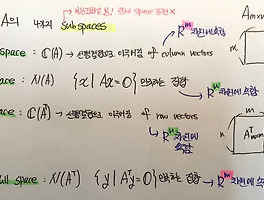 A의 4가지 Subspaces
Amxn
space : C(A) → 선형결합으로 이루어진 of column vectors
R^m 차원에 속함
m
space : N(A) {x | Ax = 0} 만족하는 집합
R^n 차원에 속함
space : C(A^T) → 선형결합으로 이루어진 of row vectors
R^n 차원에 속함
ull space : N(A^T) {y | A^Ty = 0} 만족하는 집합 → R^m 차원에 속함